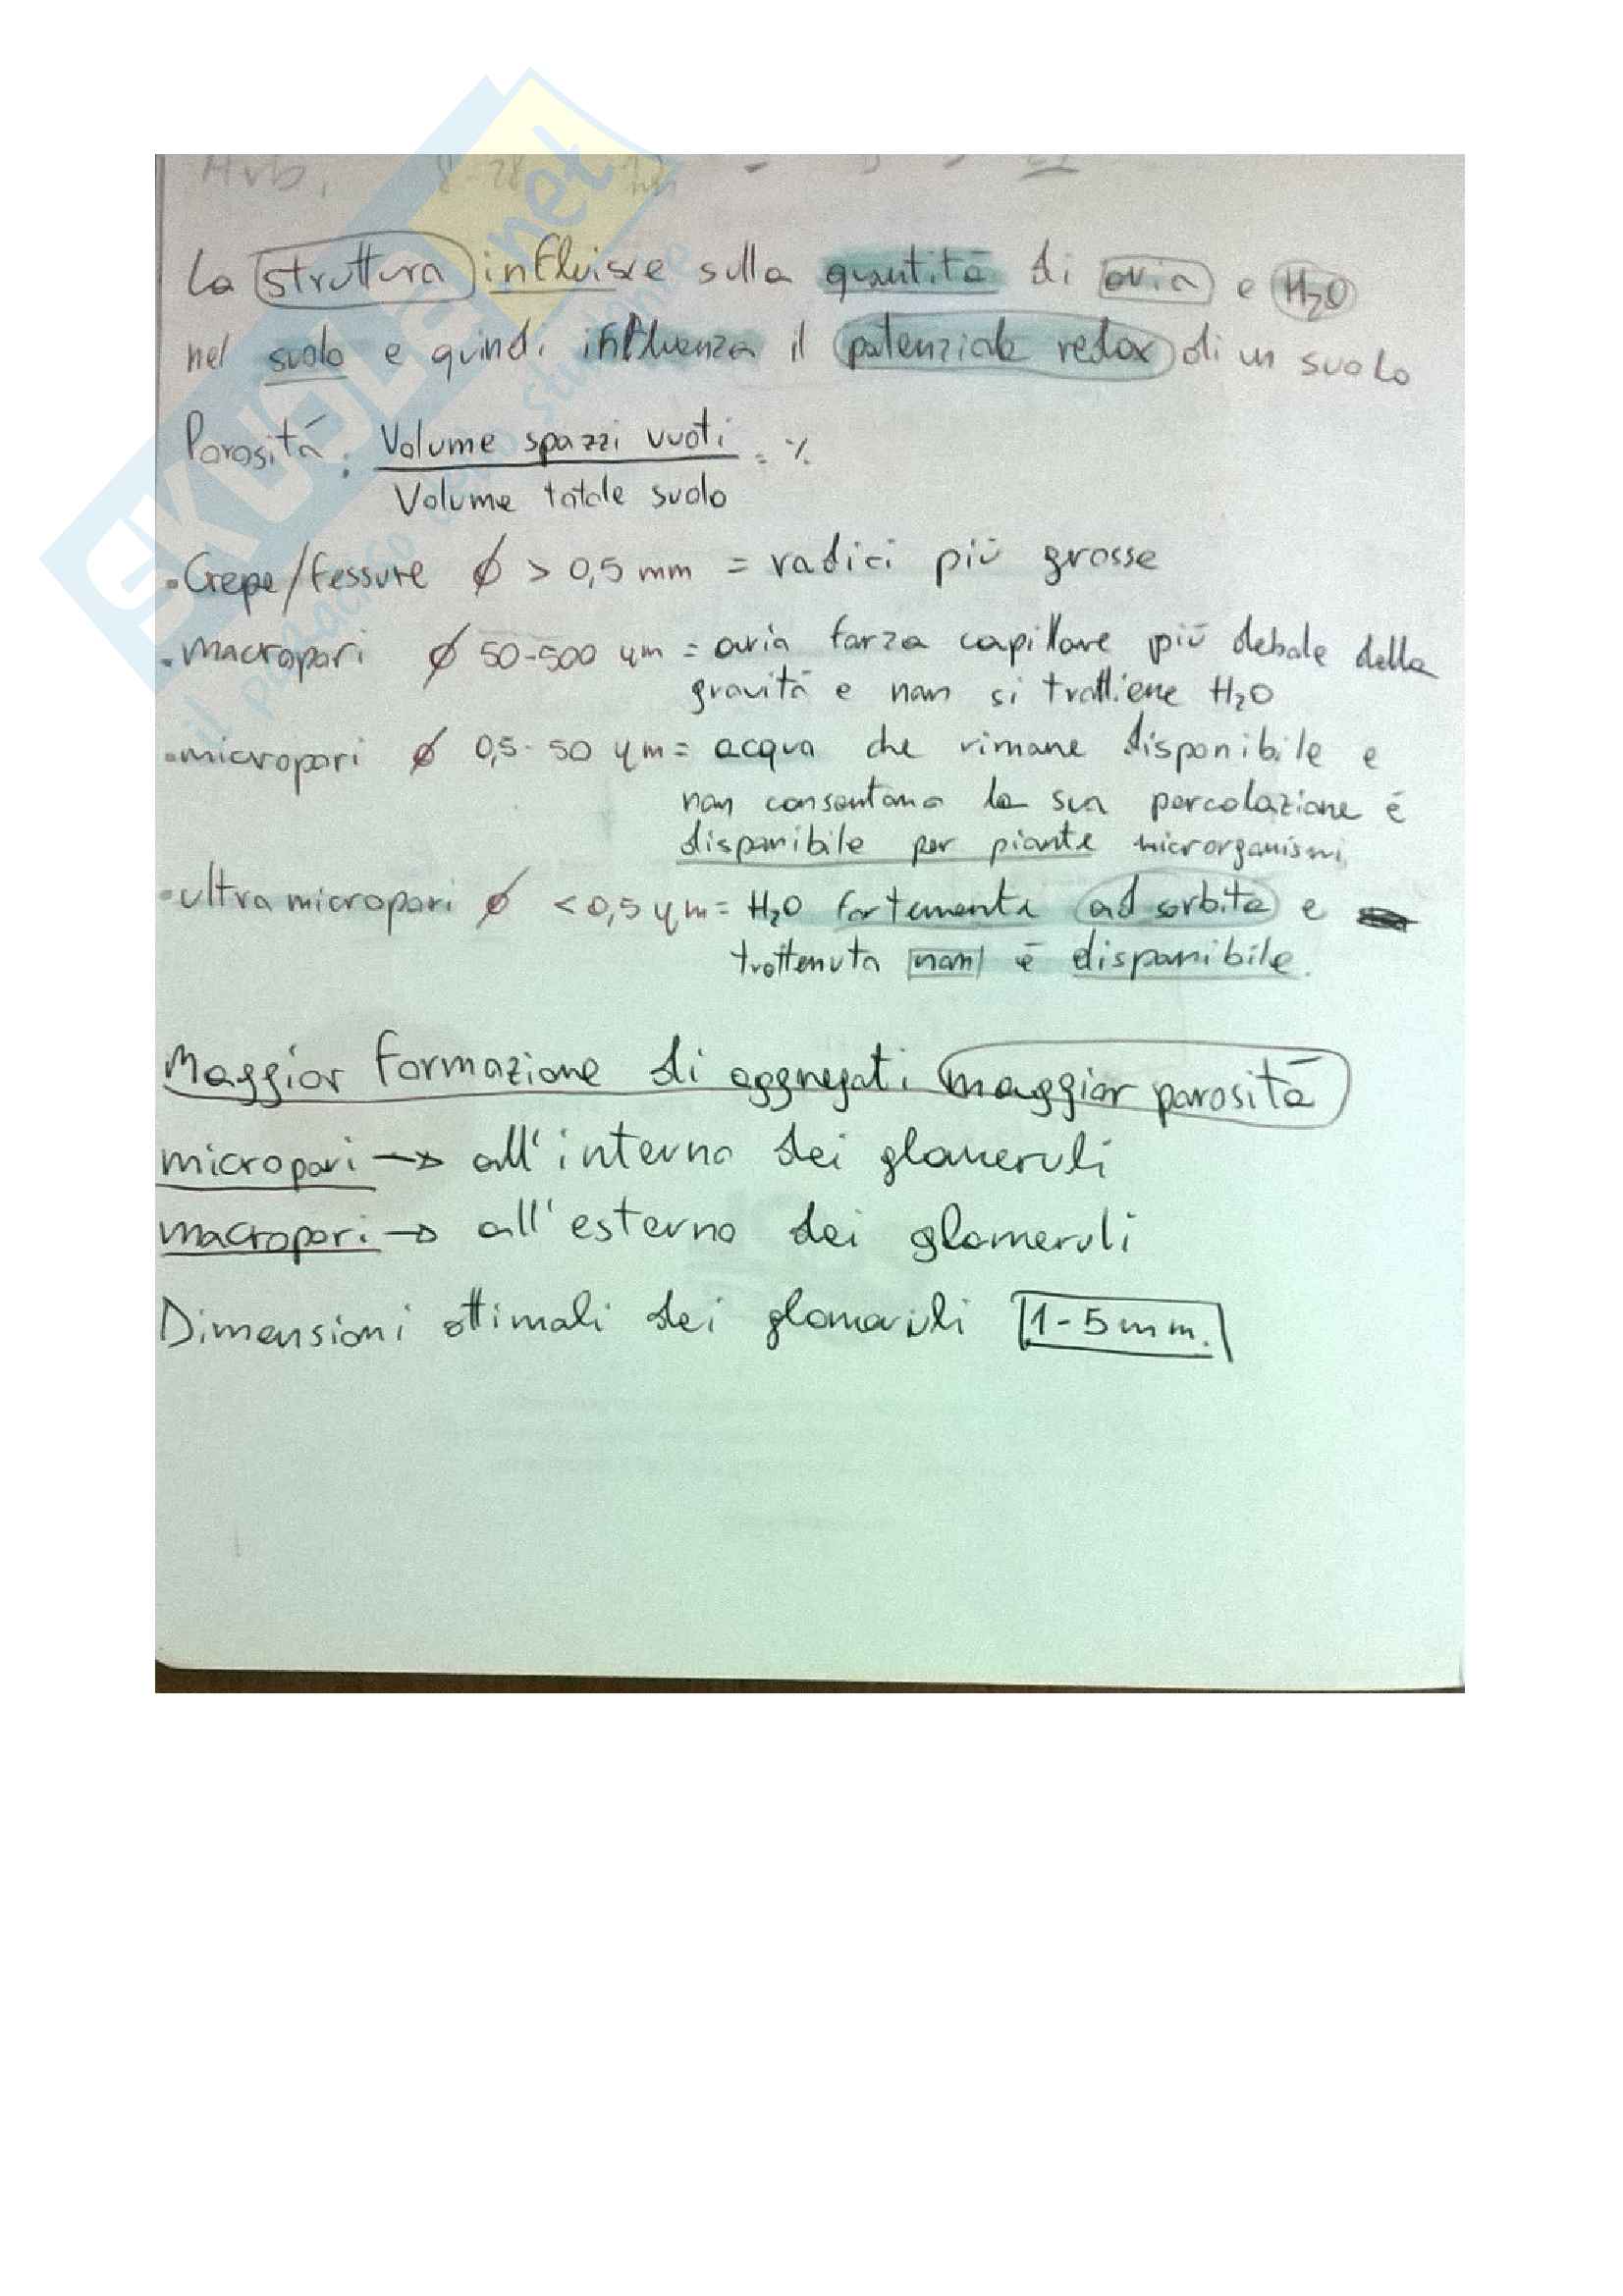 La struttura influisce sulla quantità di aria e H2O
nel suolo e quindi influenza il potenziale redox di un suolo
Porosità: Volume spazzi vuoti = %
Volume totale suolo
• Crepe/fessure ϕ > 0,5 mm = radici più grosse
• macropori ϕ 50-500 μm = aria forza capillare più debole della
gravità e non si trattiene H2O
• micropori ϕ 0,5-50 μm = acqua che rimane disponibile e
non consentono la sua percolazione è
disponibile per piante microrganismi
• ultra micropori ϕ < 0,5 μm = H2O fortemente adsorbita e
trattenuta non è disponibile.
Maggior formazione di aggregati maggior porosità
micropori → all'interno dei glomeruli
macropori → all'esterno dei glomeruli
Dimensioni ottimali dei glomeruli 1-5 mm.
SKUOLA.net
il paradiso dello studente